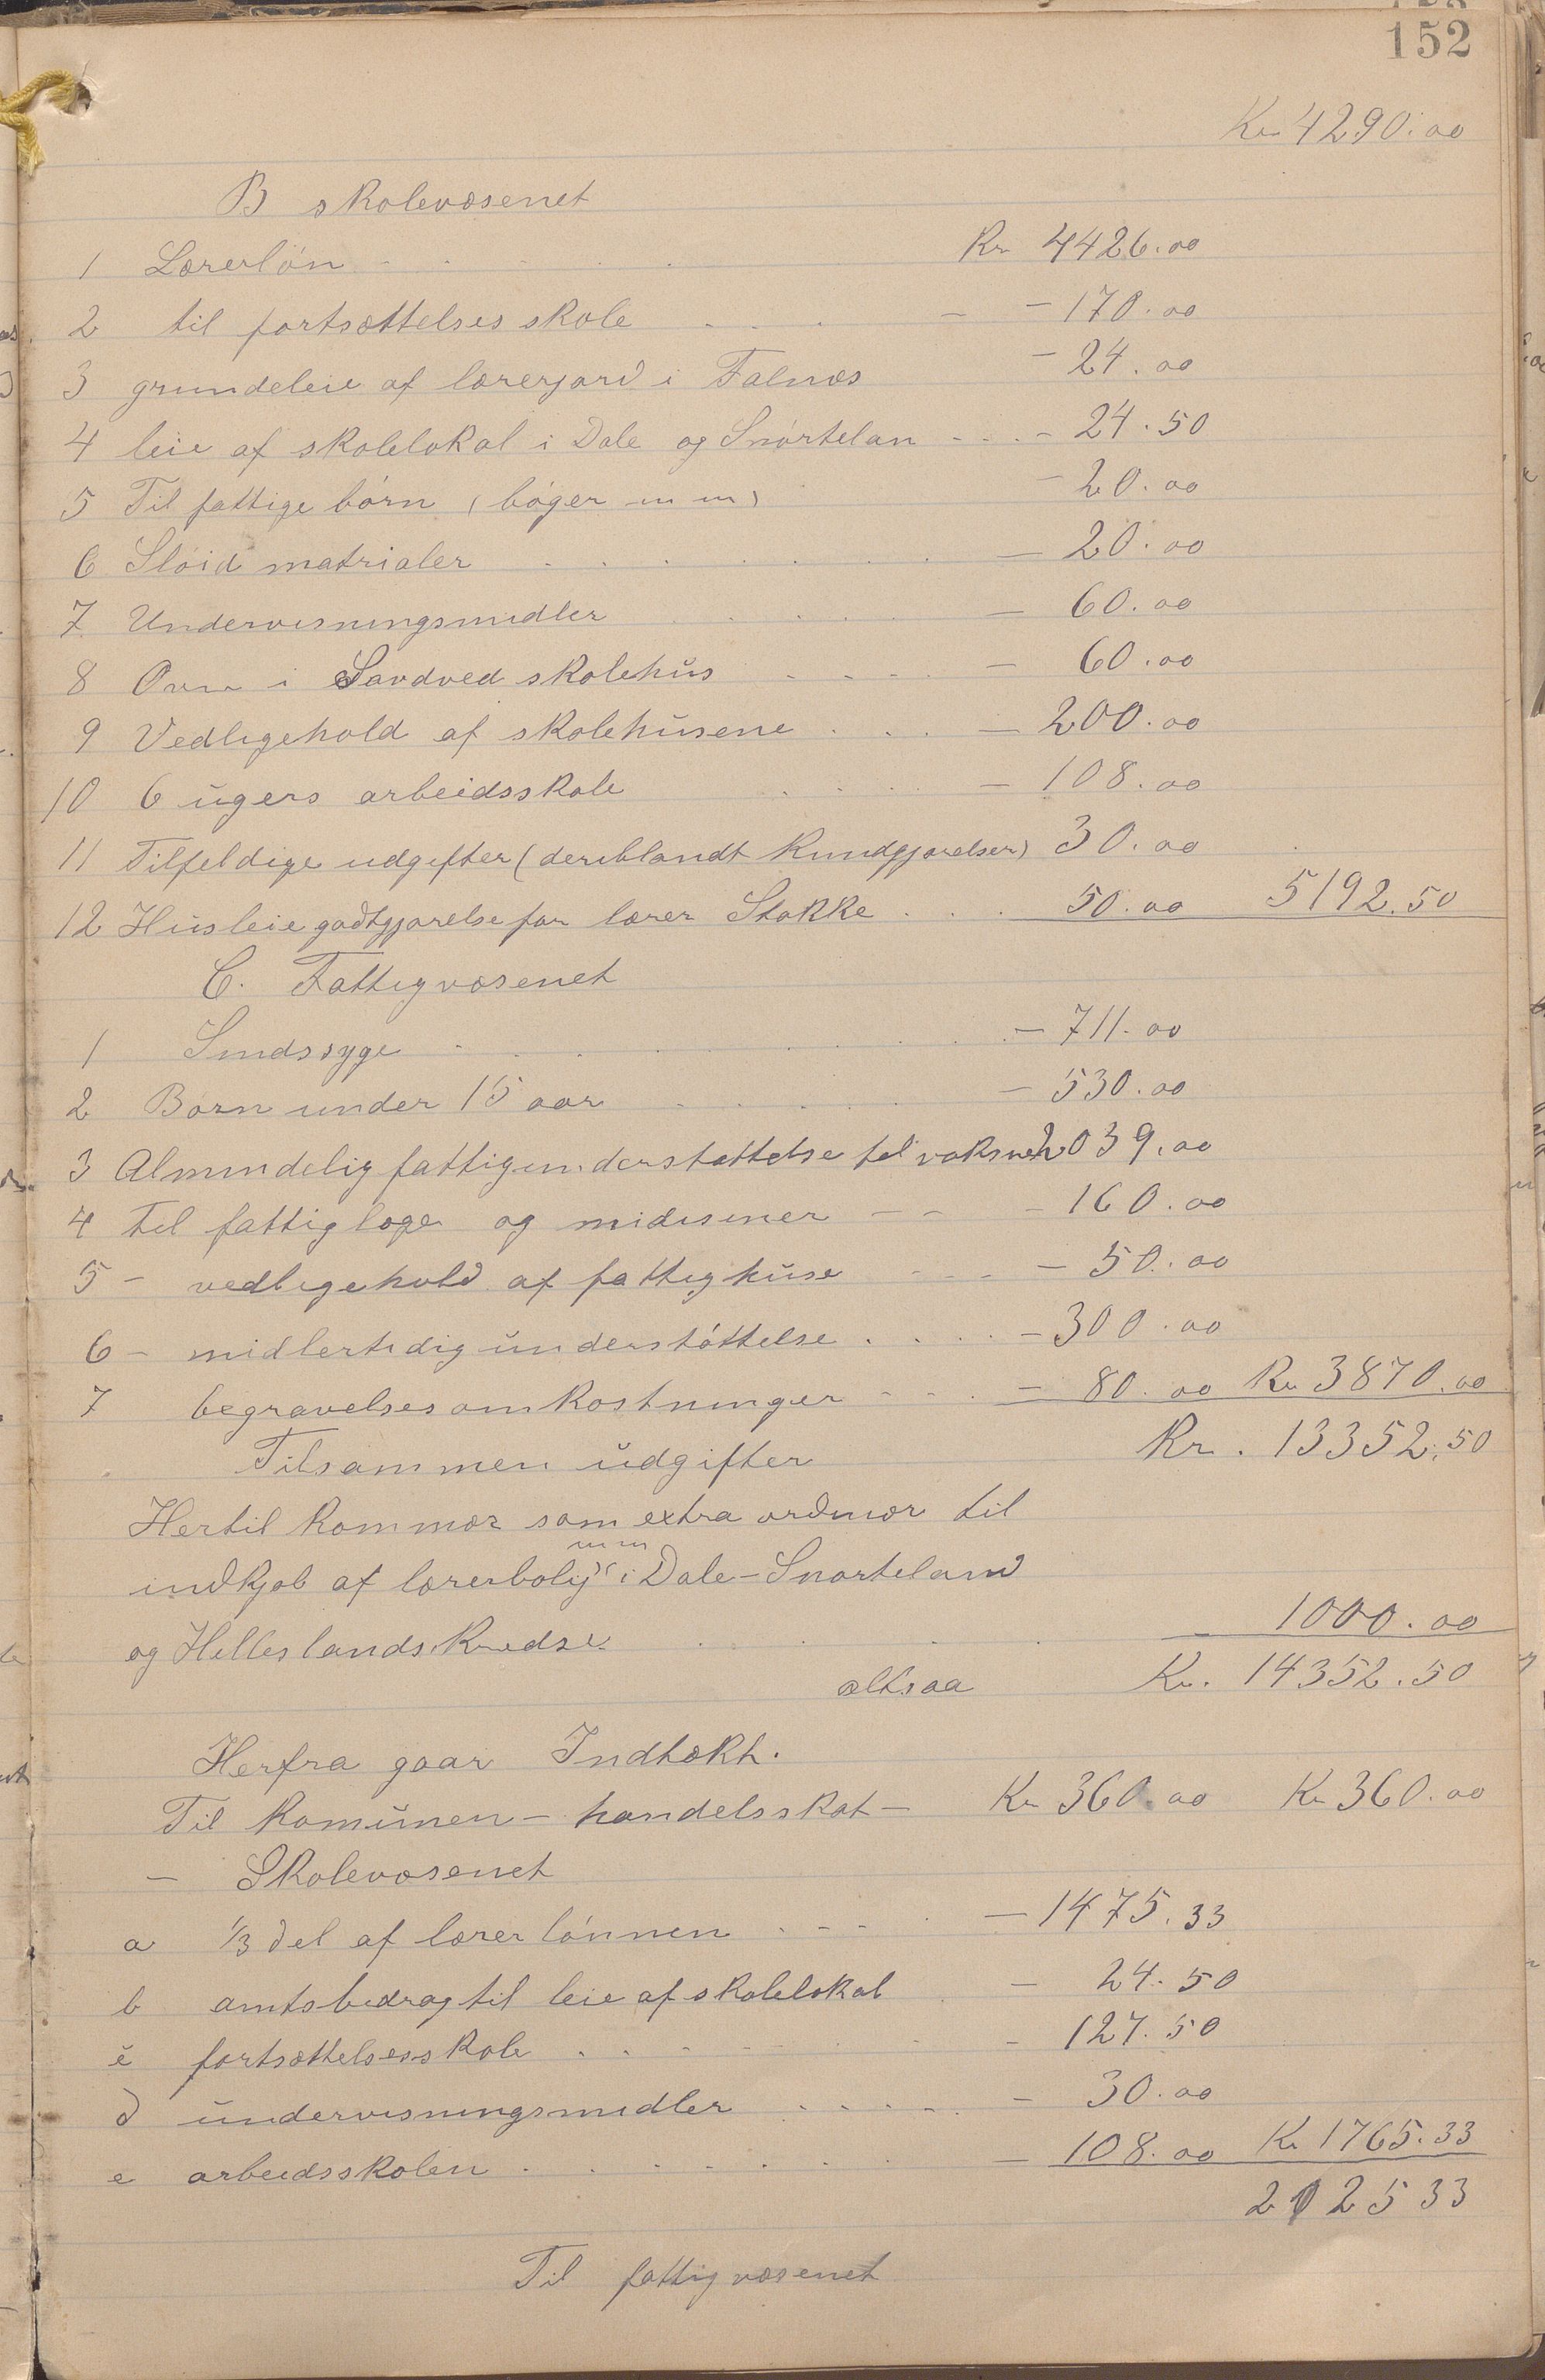 152
Kr 4290.00
B skolevæsenet
1 Lærerløn - - - - - Kr 4426.00
2 til fortsættelses skole . . . - 170.00
3 grundeleie af lærerjord i Falnæs - 24.00
4 leie af skolelokal i Dale og Snørtelan - - - - 24.50
5 Til fattige børn (bøger m m) - 20.00
6 Sløid matrialer . . . . . . - 20.00
7 Undervisningsmidler . . . . - 60.00
8 Ovn i Sandved skolehus . . . - 60.00
9 Vedligehold af skolehusene . . . - 200.00
10 6 ugers arbeidsskole . . . - 108.00
11 Tilfeldige udgifter (deriblandt kundgjørelser) 30.00
12 Husleiegodtgjørelse for lærer Stokke . . . 50.00 5192.50
C. Fattigvæsenet
1 Sindssyge - . . . . . - 711.00
2 Børn under 15 aar . . . . - 530.00
3 Almindelig fattigunderstøttelse til voksne 2039.00
4 Til fattiglæge og midisiner - - - 160.00
5 - vedligehold af fattighuse - - - - 50.00
6 - midlertidig understøttelse . . . . - 300.00
7 begravelsesomkostninger - - - - 80.00 Kr 3870.00
Tilsammen udgifter Kr. 13352.50
Hertil kommer som extra ordinær til
indkjøb af lærerbolig m m i Dale-Snørteland
og Helleslands kredse . . . . - 1000.00
altsaa Kr. 14352.50
Herfra gaar Indtækt.
Til komunen - handelsskat - Kr 360.00 Kr 360.00
- Skolevæsenet
a 1/3 del af lærerlønnen - - - . - 1475.33
b amtsbidrag til leie af skolelokal - 24.50
c fortsættelsesskole . . . - - 127.50
d undervisningsmidler . . . . - 30.00
e arbeidsskolen . . . . . . - 108.00 Kr 1765.33
2125 33
Til fattigvæsenet